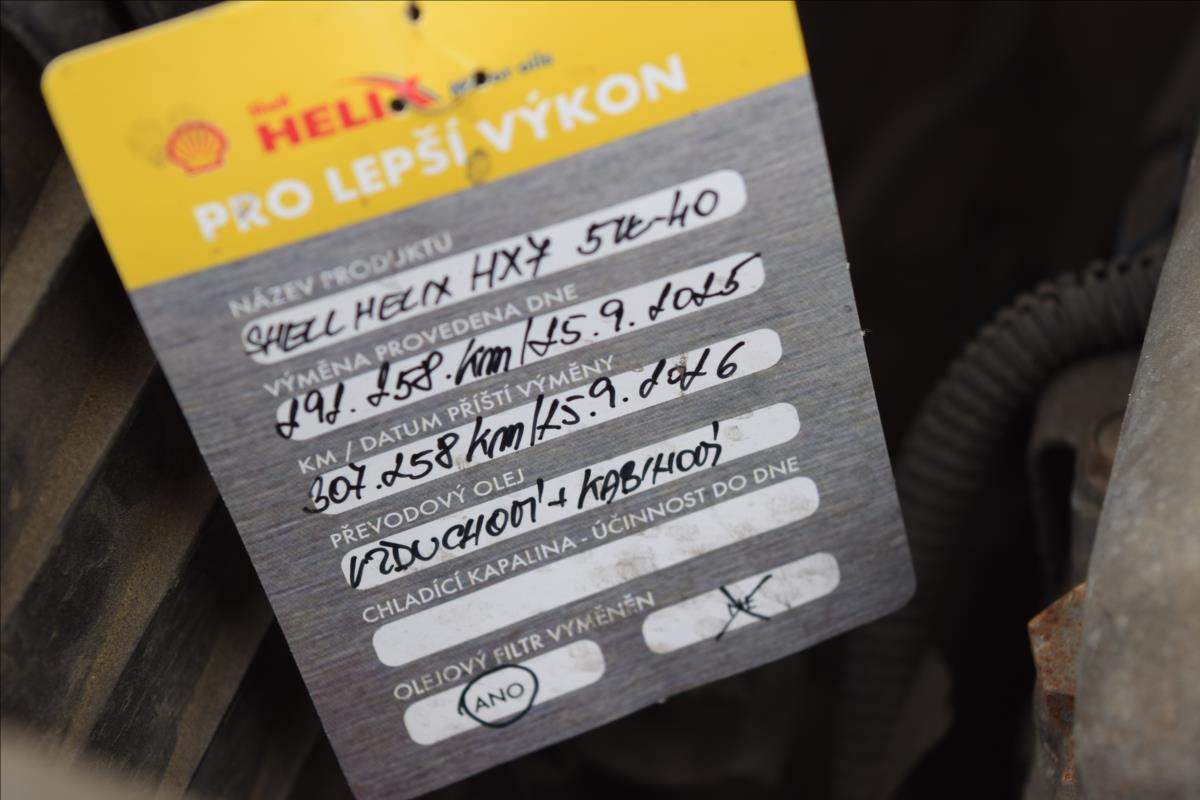 Shell
HELIX Motor oils
PRO LEPŠÍ VÝKON
NÁZEV PRODUKTU
SHELL HELIX HX7 5W-40
VÝMĚNA PROVEDENA DNE
292.258.km/25.9.2025
KM / DATUM PŘÍŠTÍ VÝMĚNY
307.258 km/25.9.2026
PŘEVODOVÝ OLEJ
VZDUCHOVÍ + KABINOVÍ
CHLADÍCÍ KAPALINA - ÚČINNOST DO DNE
OLEJOVÝ FILTR VYMĚNĚN
ANO NE